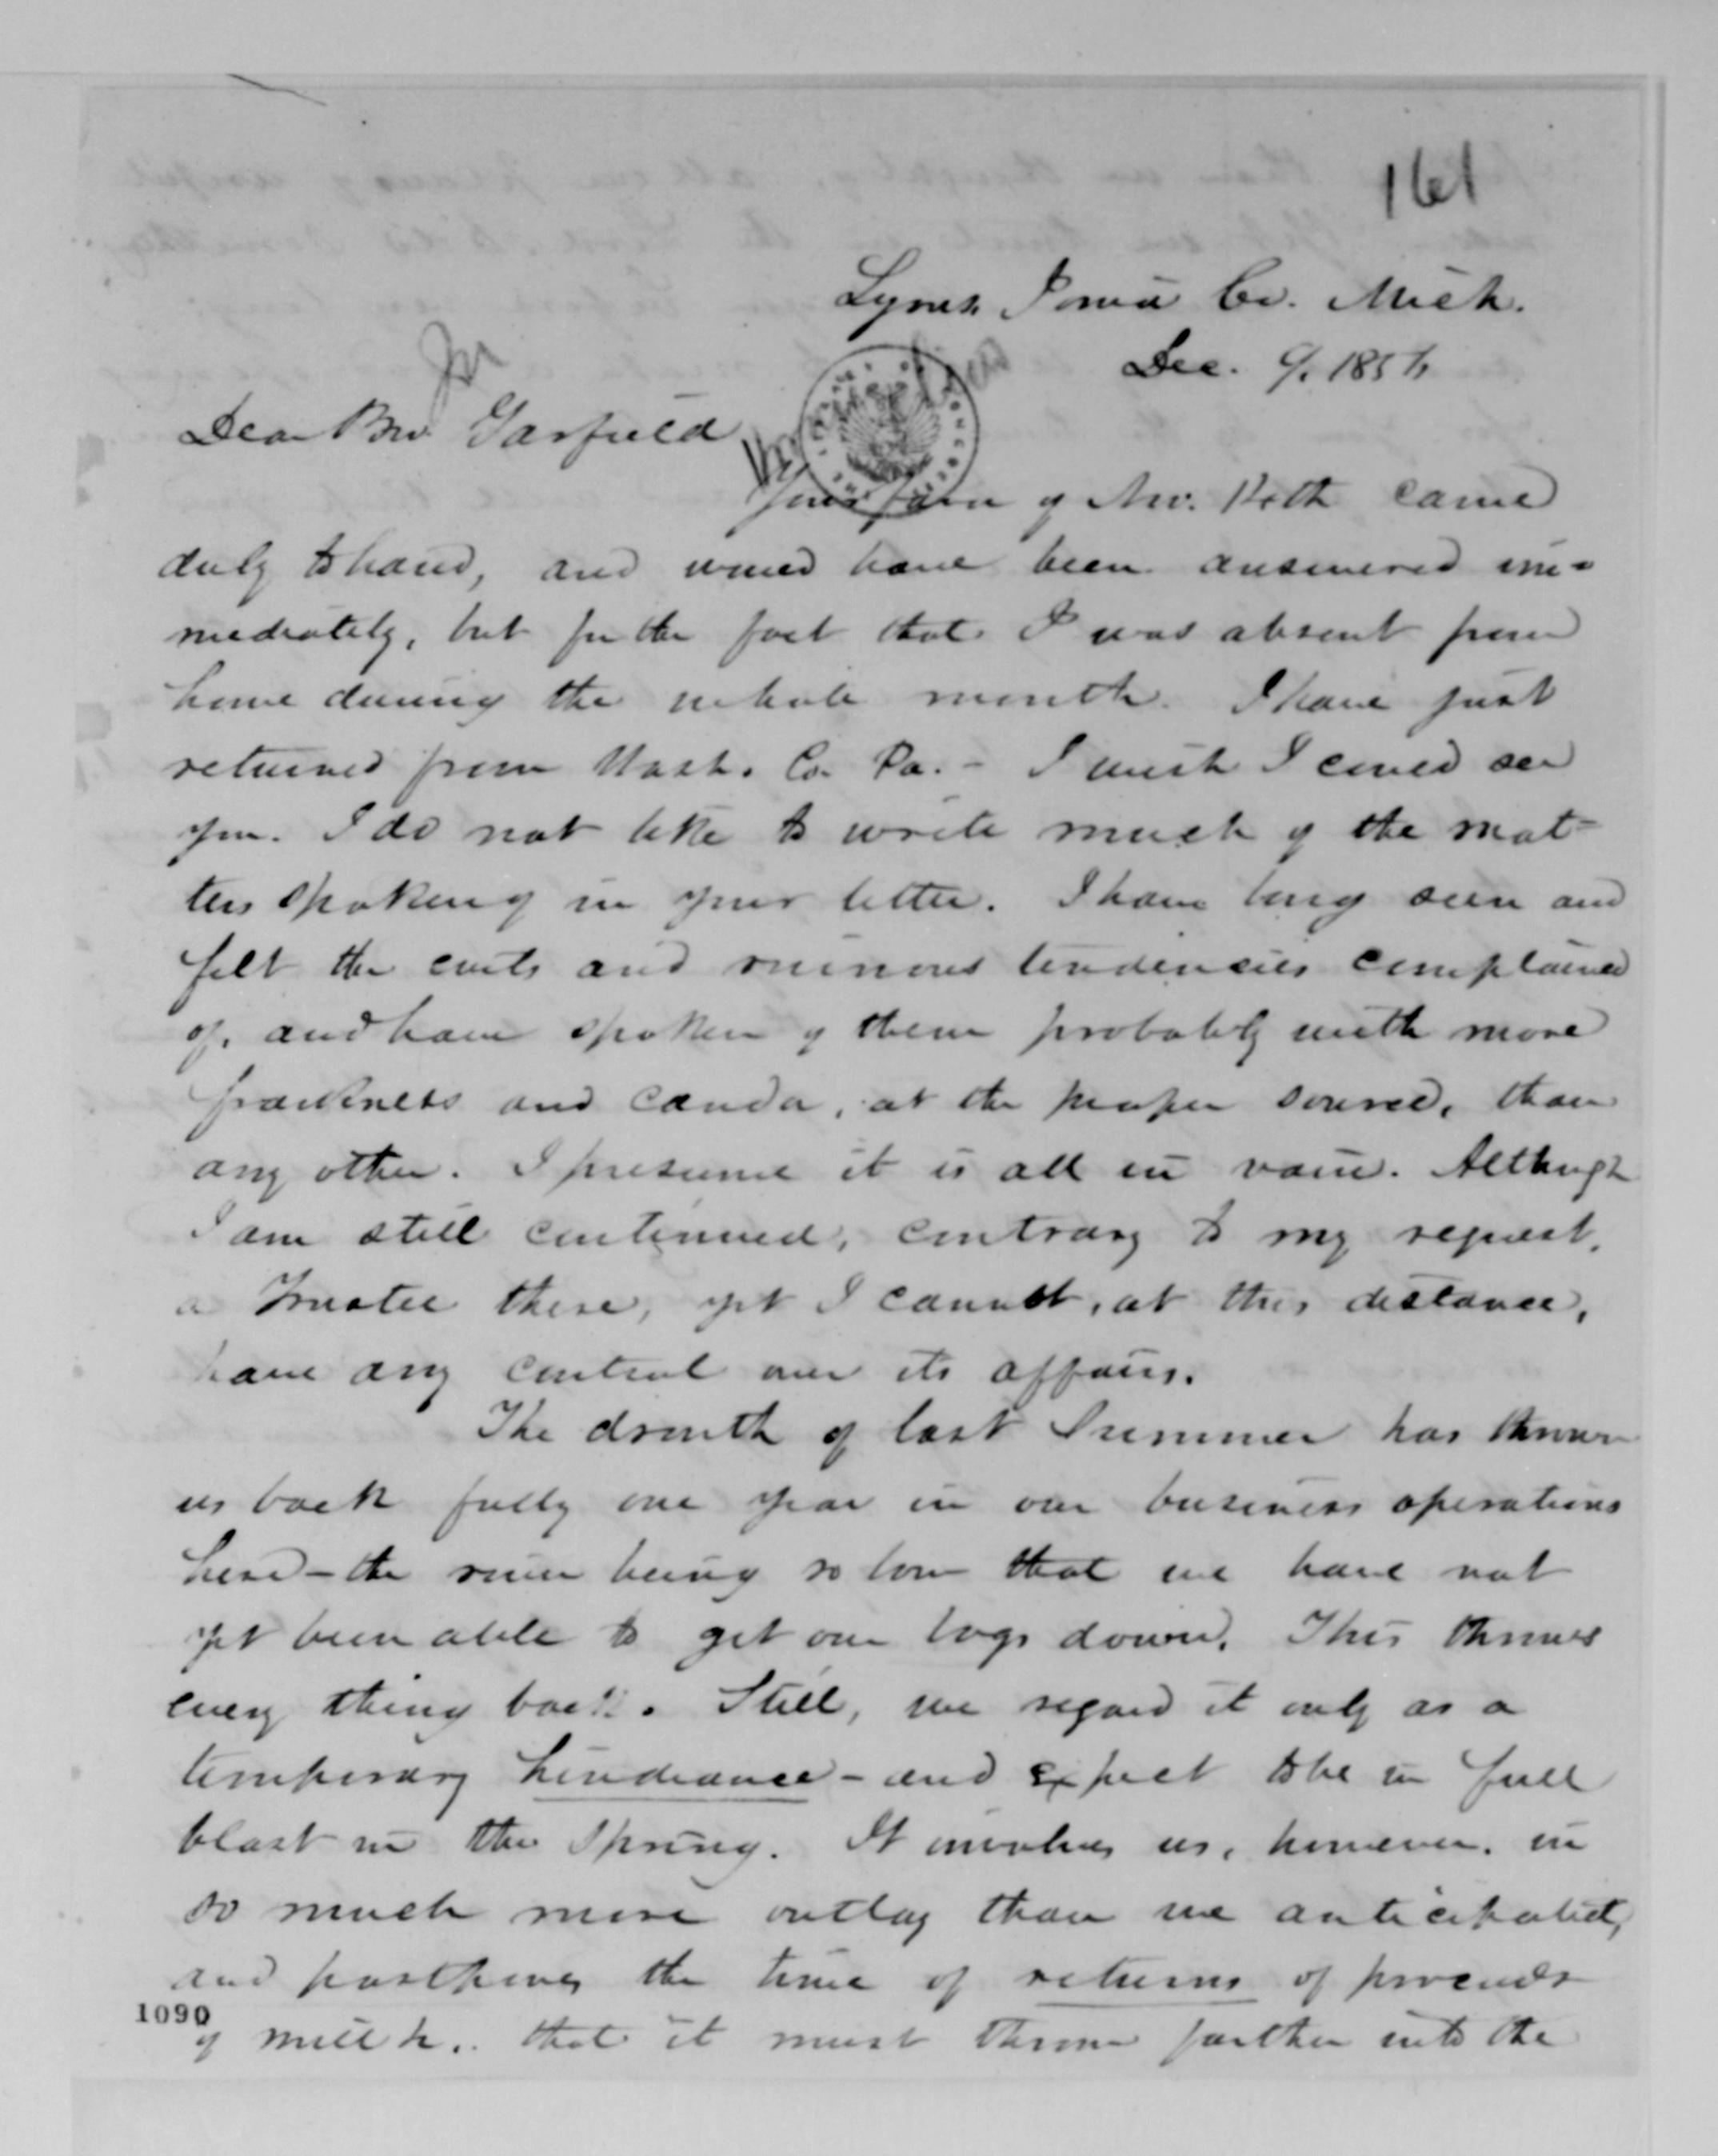 161
Lyons Ionia Co. Mich.
Dec. 9/. 1856
Dear Bro. Garfield
Your favor of Nov. 10th came
duly to hand, and would have been answered im-
mediately, but for the fact that I was absent from
home during the whole month. I have just
returned from Wash. Co. Pa. - I wish I could see
you. I do not like to write much of the mat-
ters spoken of in your letter. I have long seen and
felt the evils and ruinous tendencies complained
of, and have spoken of them probably with more
frankness and candor, at the proper source, than
any other. I presume it is all in vain. Although
I am still continued, contrary to my request,
a Trustee there, yet I cannot, at this distance,
have any control over its affairs.
The drouth of last Summer has thrown
us back fully one year in our business operations
here - the river being so low that we have not
yet been able to get our logs down. This throws
every thing back. Still, we regard it only as a
temporary hindrance - and expect to be in full
blast in the Spring. It involves us, however, in
so much more outlay than we anticipated,
and postpones the time of returns of proceeds
1090
of mill &c. that it must throw farther into the